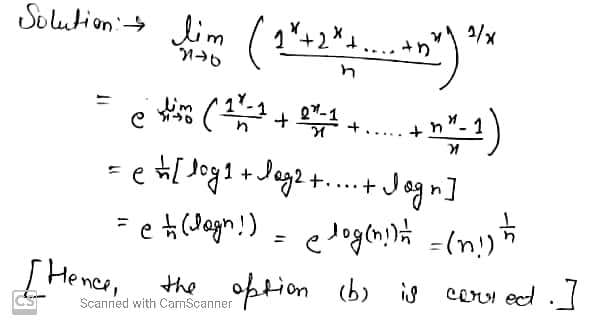 Solution:→ lim x→0 ( (1^x + 2^x + .... + n^x) / n )^(1/x)
= e^ lim x→0 ( (1^x - 1)/n + (2^x - 1)/x + ..... + (n^x - 1)/x )
= e^ 1/n [ log 1 + log 2 + .... + log n ]
= e^ 1/n (log n!) = e^ log(n!)^(1/n) = (n!)^(1/n)
[Hence, the option (b) is correct.]
CS Scanned with CamScanner